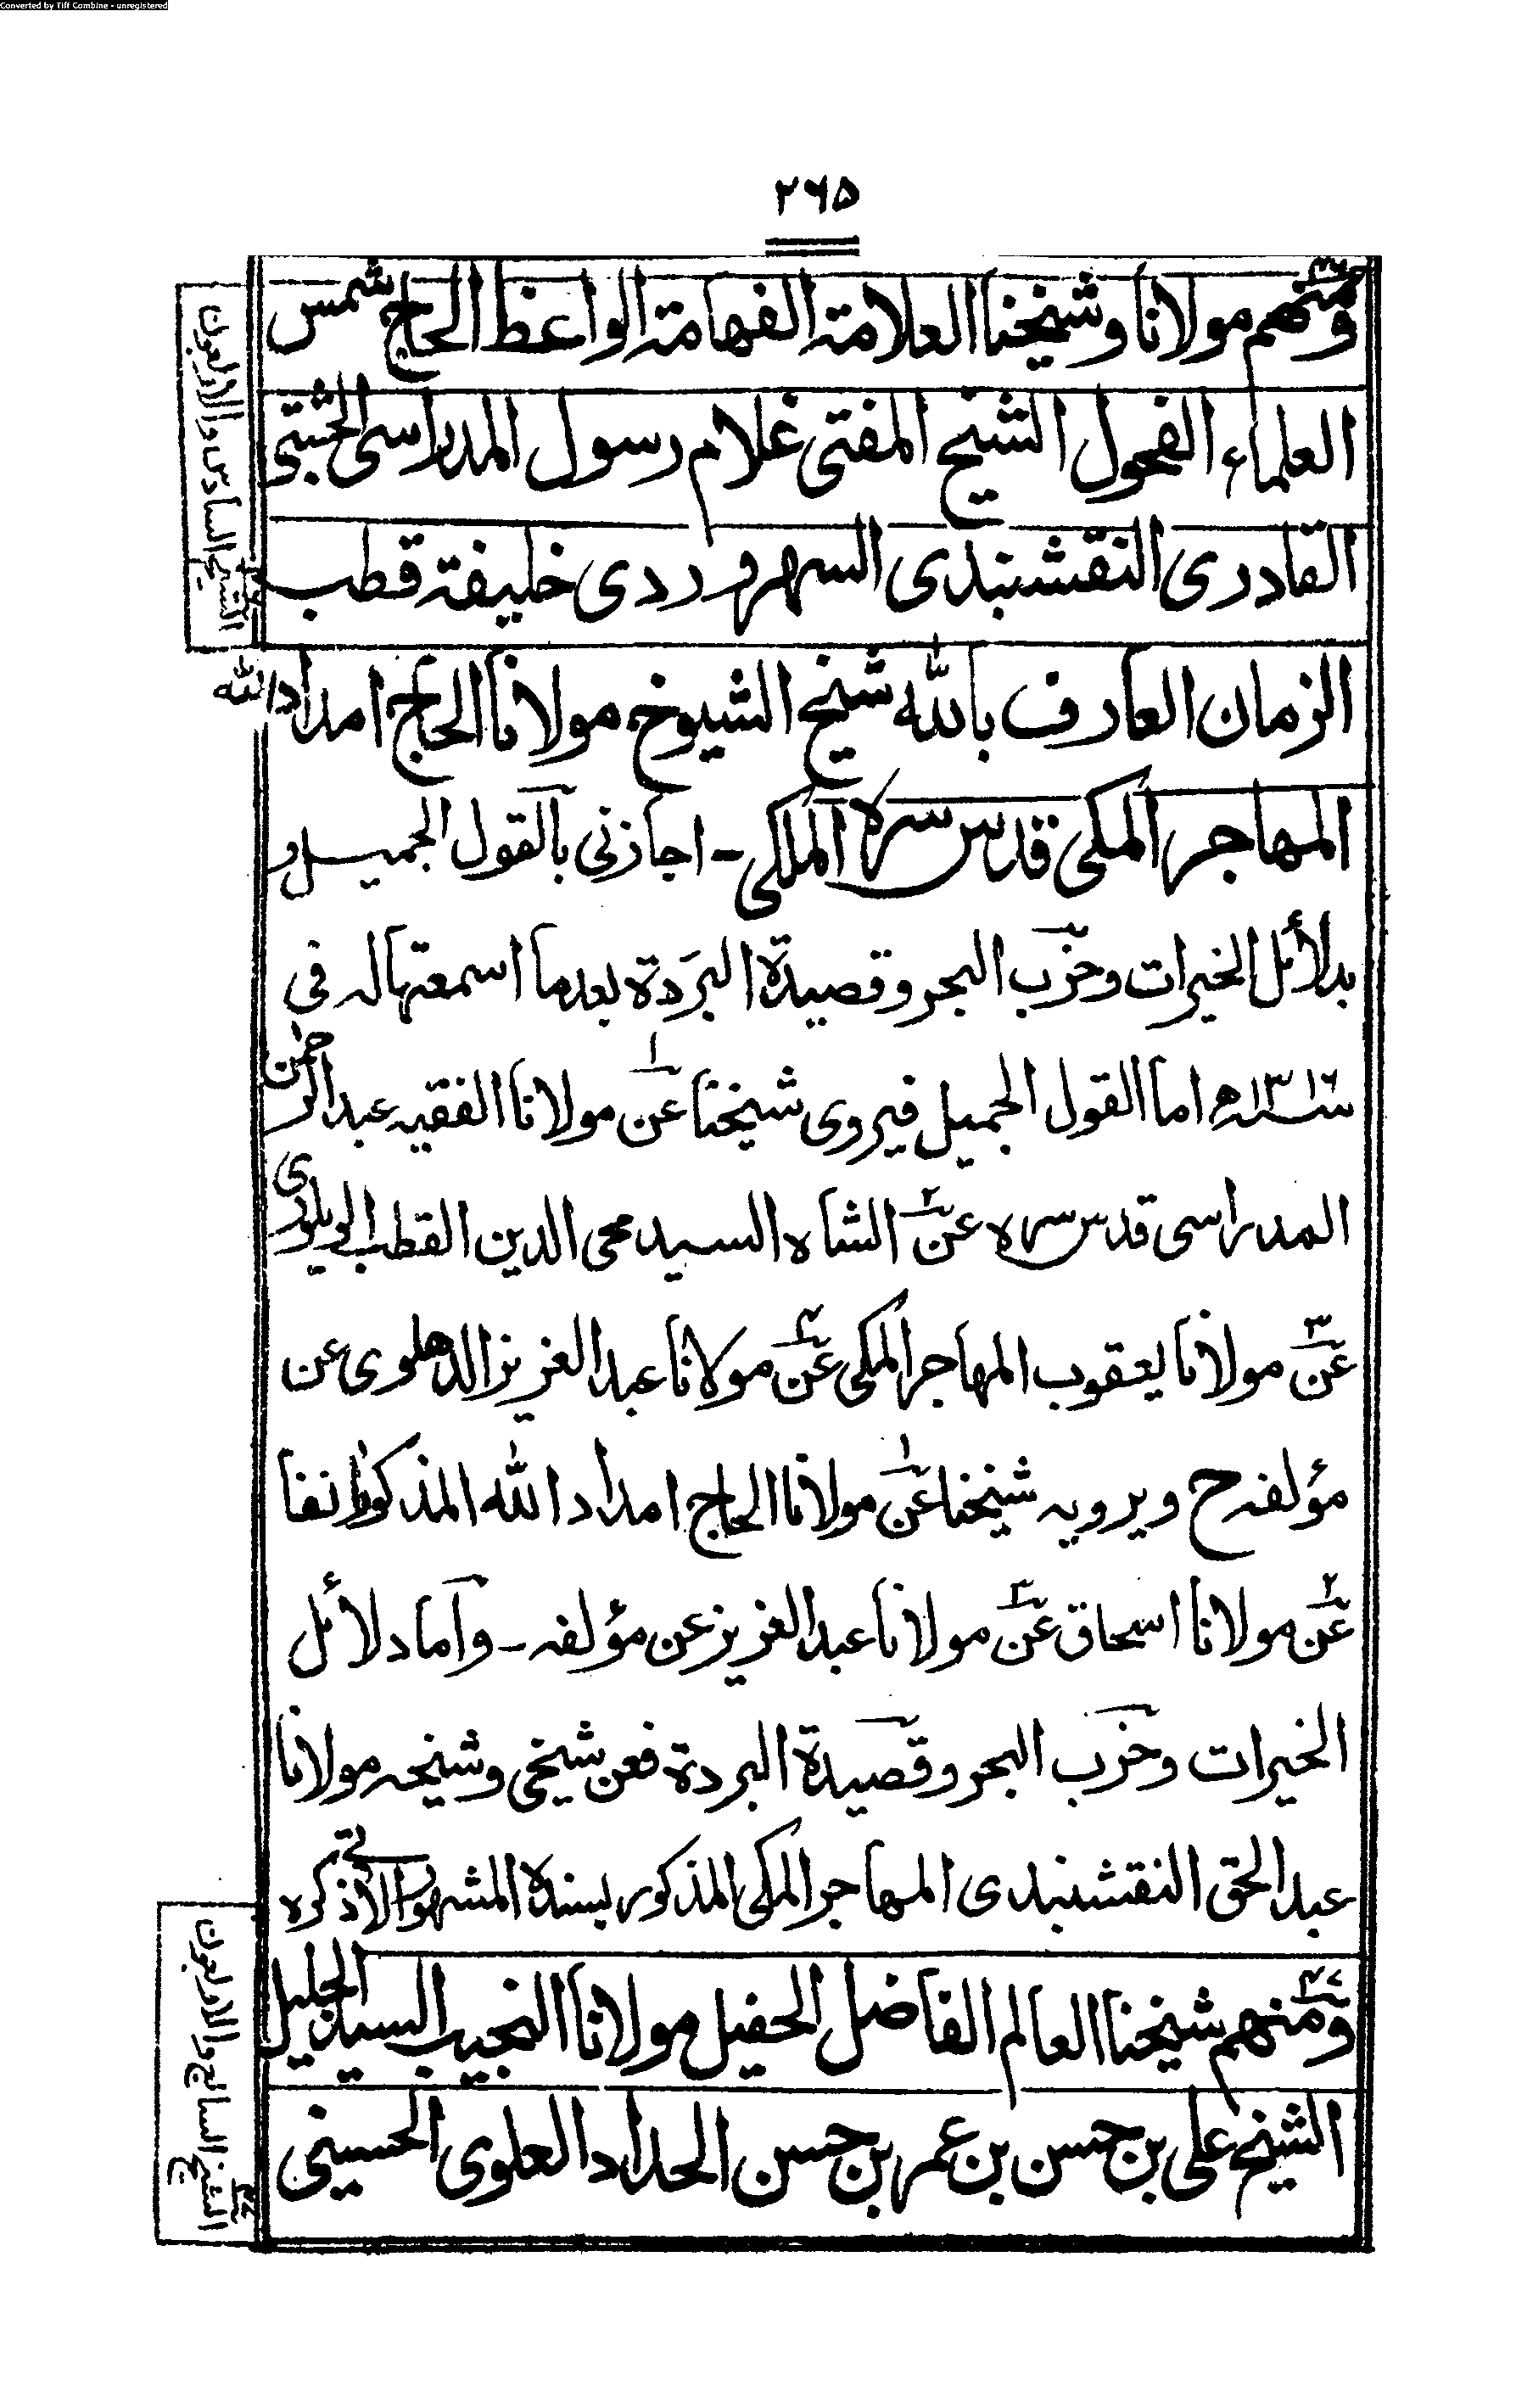 Converted by Tiff Combine - unregistered
۲۶۵
ومنهم مولانا وشیخنا العلامة الفهامة الواعظ الحاج شمس
العلماء الفحول الشیخ المفتی غلام رسول المدراسی الچشتی
القادری النقشبندی السهروردی خلیفة قطب
الزمان العارف بالله شیخ الشیوخ مولانا الحاج امداد الله
المهاجر المکی قدس سره الملکی - اجازنی بالقول الجمیل و
بدلائل الخیرات وحزب البحر وقصیدة البردة بعدما اسمعتها له فی
سنة ۱۳۱۶ه اما القول الجمیل فیروی شیخنا عن۱ مولانا الفقیه عبد الرحمن
المدراسی قدس سره عن۲ الشاه السید محی الدین القطب الویلوری
عن۳ مولانا یعقوب المهاجر المکی عن۴ مولانا عبد العزیز الدهلوی عن
مؤلفه ح ویرویه شیخنا عن۱ مولانا الحاج امداد الله المذکور انفا
عن۲ مولانا اسحاق عن۳ مولانا عبد العزیز عن مؤلفه - واما دلائل
الخیرات وحزب البحر وقصیدة البردة فعن شیخی وشیخه مولانا
عبد الحق النقشبندی المهاجر المکی المذکور بسنده المشهور الاتی ذکره
ومنهم۴۷ شیخنا العالم الفاضل الحفیل مولانا النجیب السید الجلیل
الشیخ علی بن حسن بن عمر بن حسن الحداد العلوی الحسینی
الشیخ السادس والاربعون
الشیخ السابع والاربعون